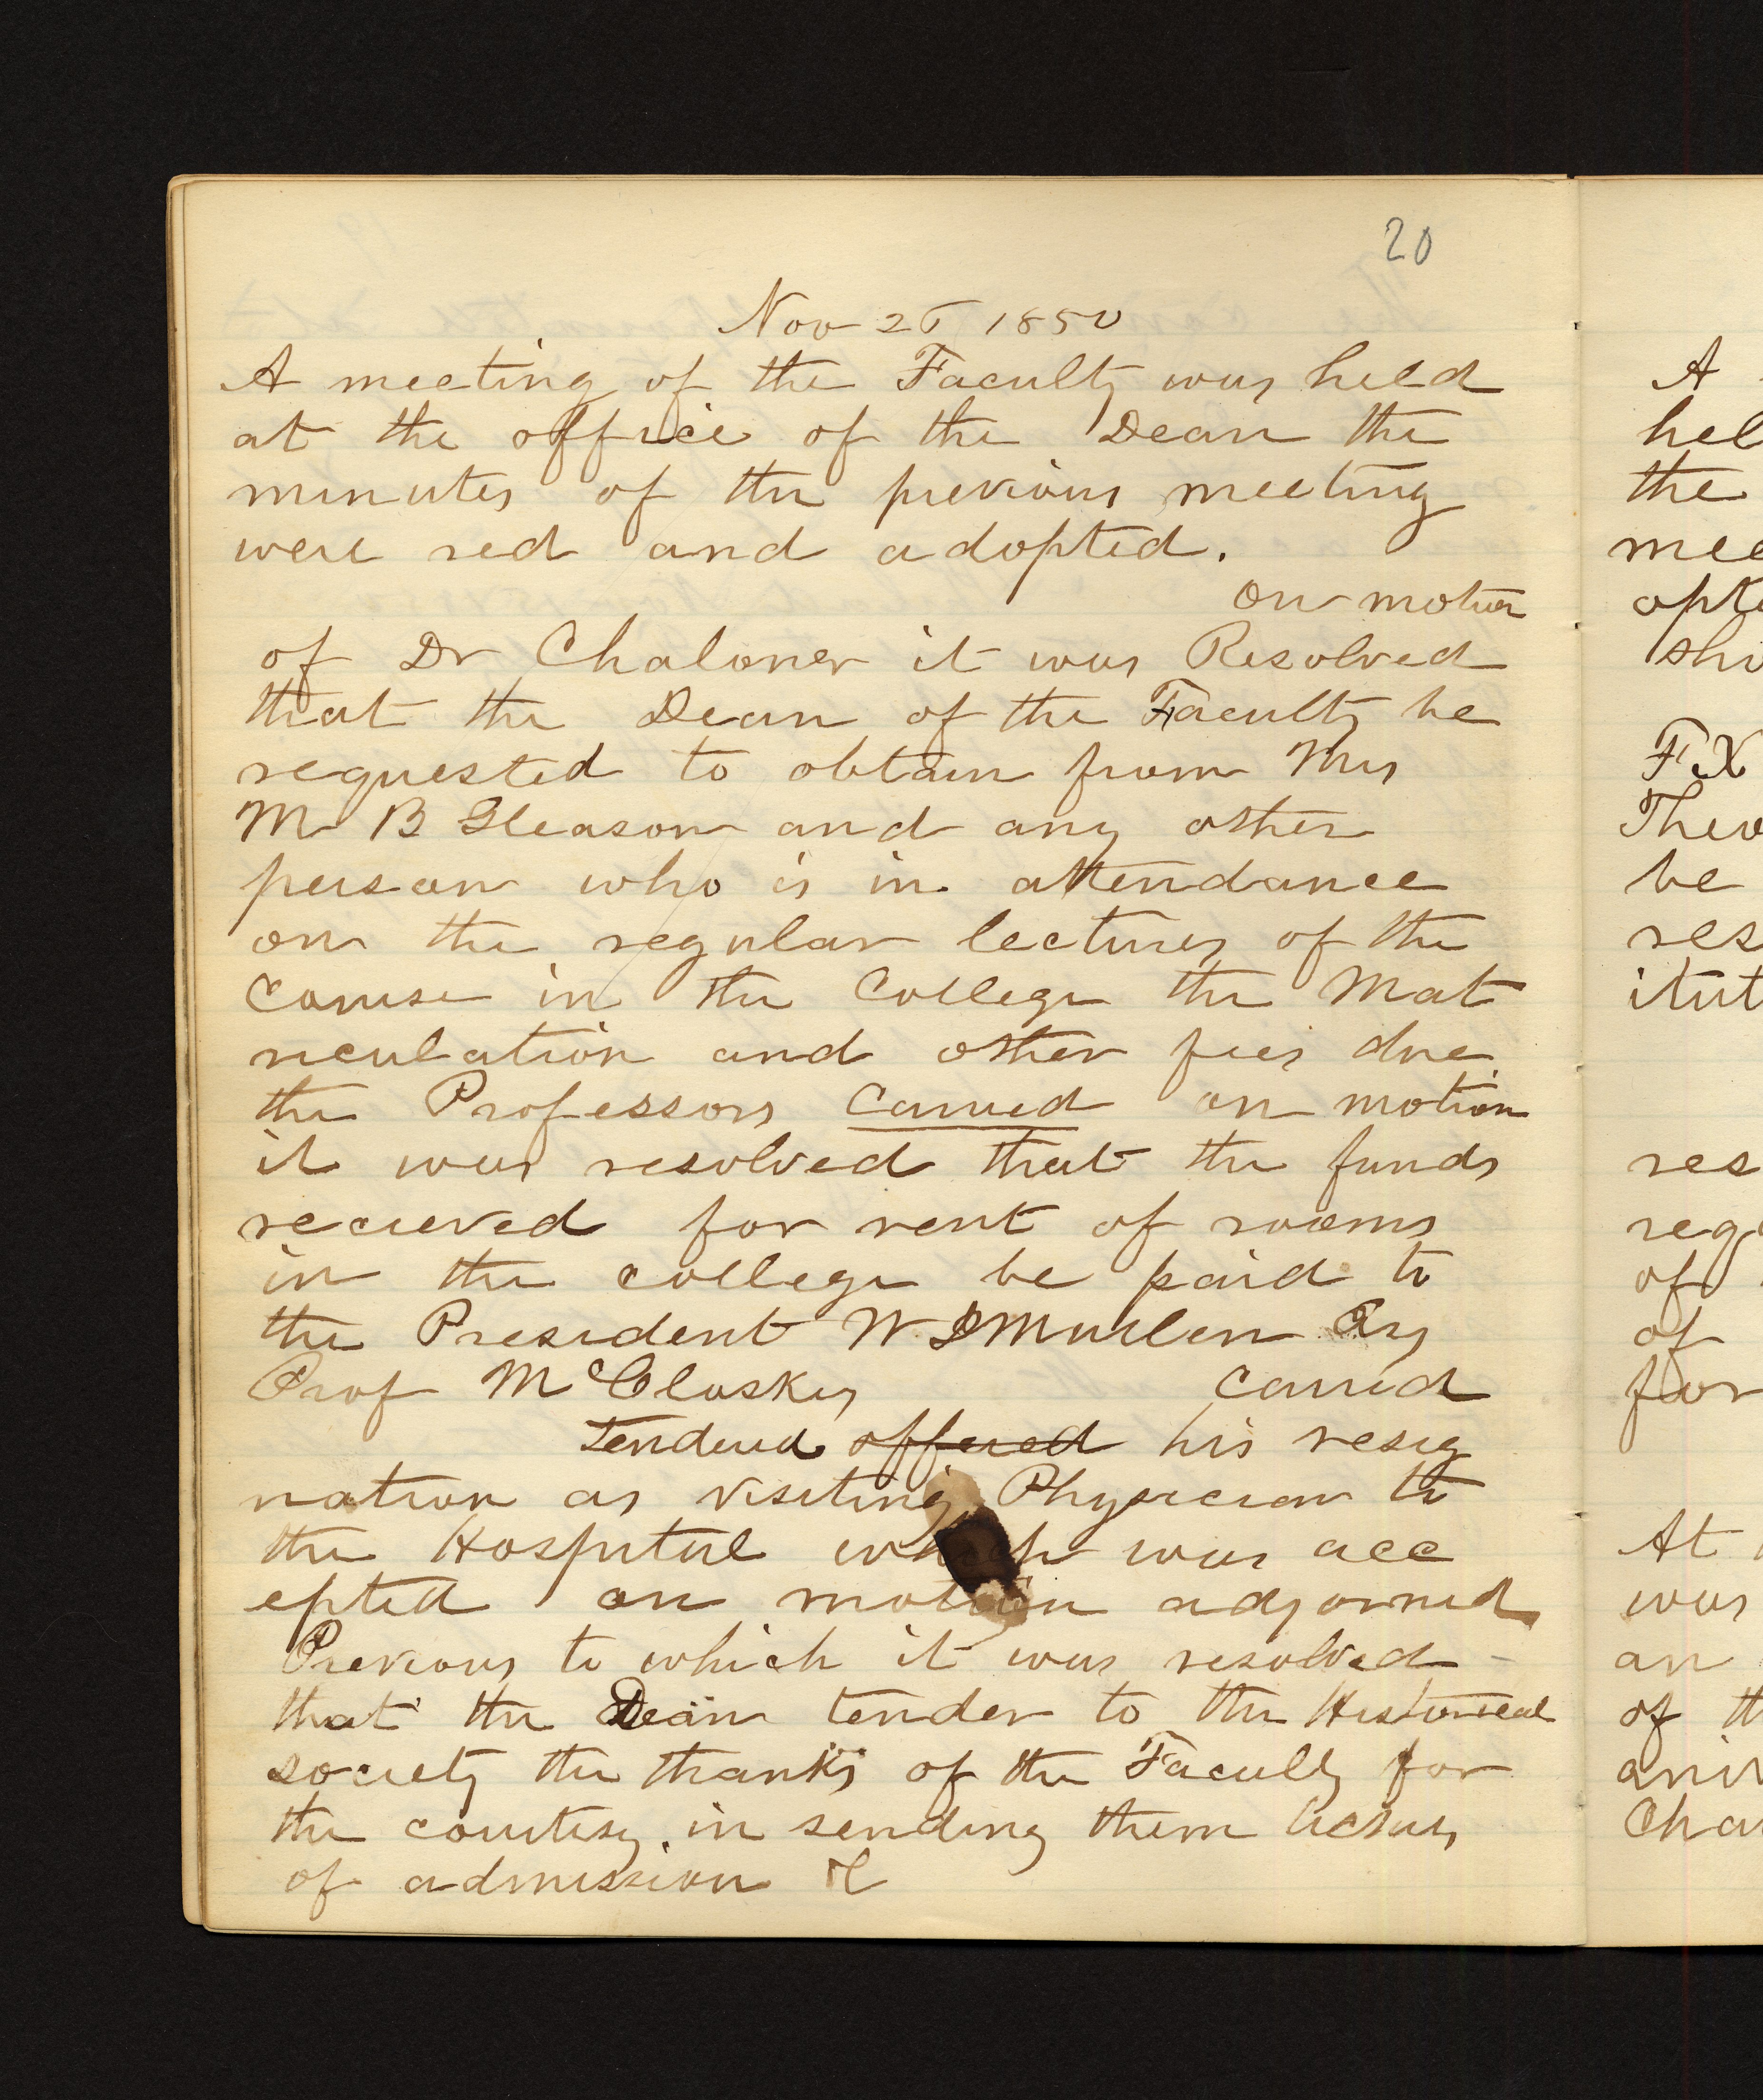 20
Nov 26 1850
A meeting of the Faculty was held
at the office of the Dean the
minutes of the previous meeting
were red and adopted.
on motion
of Dr Chaloner it was Resolved
that the Dean of the Faculty be
requested to obtain from Mrs
M B Gleason and any other
person who is in attendance
on the regular lectures of the
Course in the College the Mat
riculation and other fees due
the Professors Carried on motion
it was resolved that the funds
recieved for rent of rooms
in the college be paid to
the President W J Mullen Esq
Prof McCloskey carried
Tendered offered his resig
nation as visiting Physician to
the Hospital which was acc
epted on motion adjorned
Previous to which it was resolved
that the Dean tender to the Historical
society the thanks of the Faculty for
the courtesy in sending them tickets
of admission &
A
hel
the
mee
opte
sho
FX
Theo
be
res
itut
res
reg
of
of
for
At
was
an
of th
aniv
Cha